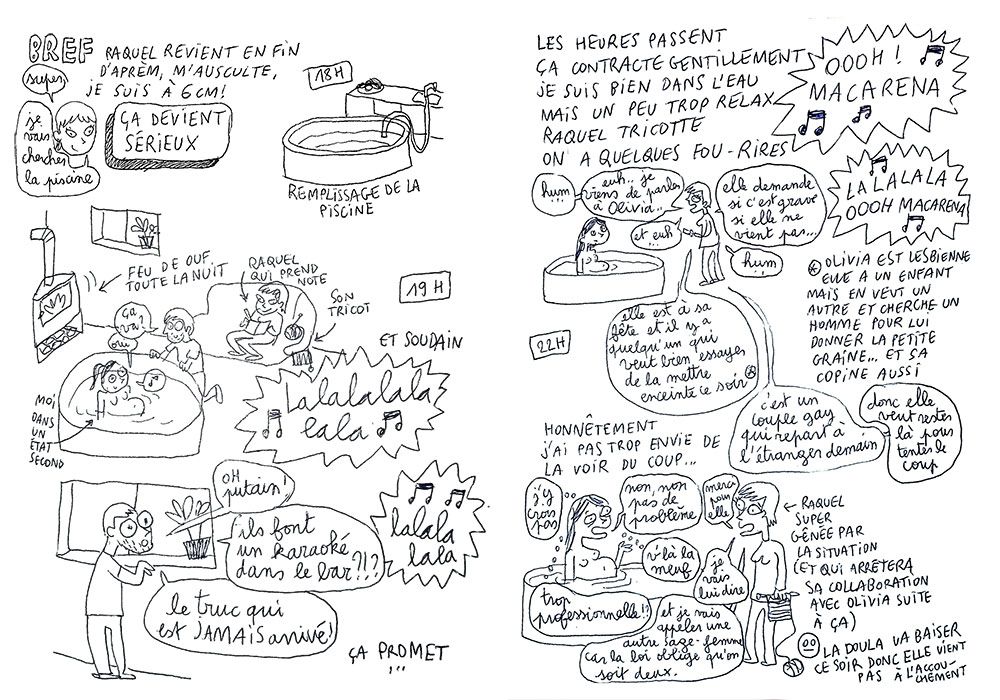 BREF RAQUEL REVIENT EN FIN
D'APRÈM, M'AUSCULTE,
JE SUIS À 6 CM!
super
je
vais
chercher
la piscine
ÇA DEVIENT
SÉRIEUX
18H
REMPLISSAGE DE LA
PISCINE
FEU DE OUF
TOUTE LA NUIT
RAQUEL
QUI PREND
NOTE
SON
TRICOT
19H
ça
va?
oui
MOI
DANS
UN
ETAT
SECOND
ET SOUDAIN
lalalalala
lala
oh
putain!
ils font
un karaoké
dans le bar?!?
le truc qui
est JAMAIS arrivé!
lalala
lala
ÇA PROMET
...
LES HEURES PASSENT
ÇA CONTRACTE GENTILLEMENT
JE SUIS BIEN DANS L'EAU
MAIS UN PEU TROP RELAX
RAQUEL TRICOTTE
ON A QUELQUES FOU-RIRES
OOOH!
MACARENA
LALALALA
OOOH MACARENA
hum
...
euh.. je
viens de parler
à Olivia..
et euh
...
elle demande
si c'est grave
si elle ne
vient pas...
hum
...
22H
elle est à sa
fête et il y a
quelqu'un qui
veut bien essayer
de la mettre
enceinte ce soir
OLIVIA EST LESBIENNE
ELLE A UN ENFANT
MAIS EN VEUT UN
AUTRE ET CHERCHE UN
HOMME POUR LUI
DONNER LA PETITE
GRAINE... ET SA
COPINE AUSSI
c'est un
couple gay
qui repart à
l'étranger demain
donc elle
veut rester
là pour
tenter le
coup
HONNÊTEMENT
J'AI PAS TROP ENVIE DE
LA VOIR DU COUP...
j'y
crois
pas
non, non
pas de
problème
merci
pour
elle
v'là la
meuf
je
vais
lui dire
trop
professionnelle!?
et je vais
appeler une
autre sage-femme
car la loi oblige qu'on
soit deux.
RAQUEL
SUPER
GÊNÉE PAR
LA SITUATION
(ET QUI ARRÊTERA
SA COLLABORATION
AVEC OLIVIA SUITE
À ÇA)
LA DOULA VA BAISER
CE SOIR DONC ELLE VIENT
PAS À L'ACCOU-
CHEMENT